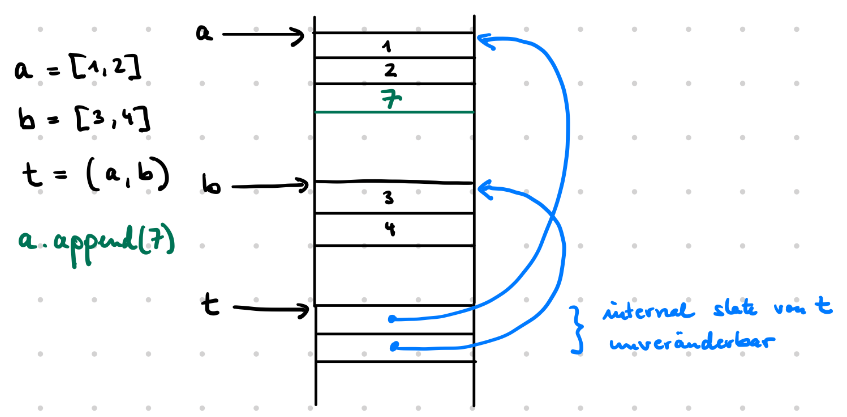 a = [1,2]
b = [3,4]
t = (a,b)
a.append(7)
a
1
2
7
b
3
4
t
internal state von t
unveränderbar